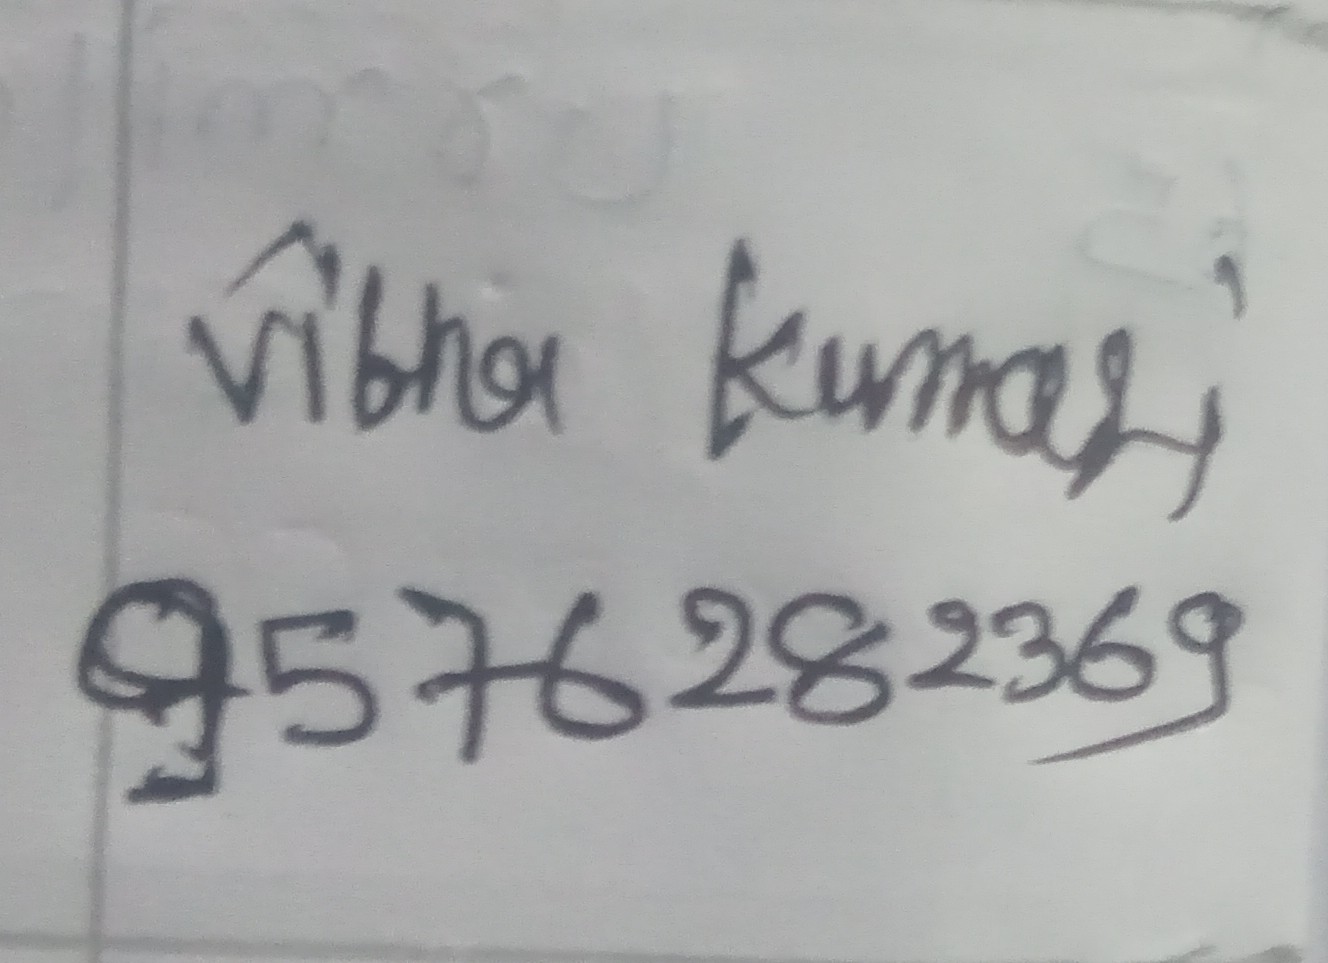 Vibha Kumari
9576282369